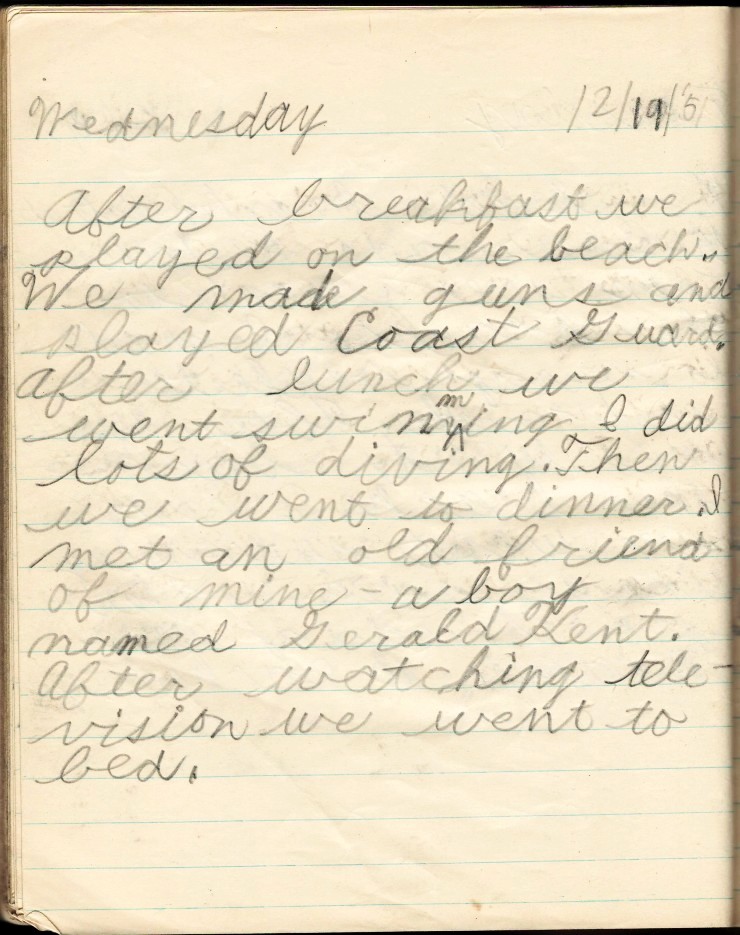 Wednesday 12/19/'51
After breakfast we
played on the beach.
We made guns and
played Coast Guard.
After lunch we
went swimming I did
lots of diving. Then
we went to dinner. I
met an old friend
of mine - a boy
named Gerald Kent.
After watching tele-
vision we went to
bed.